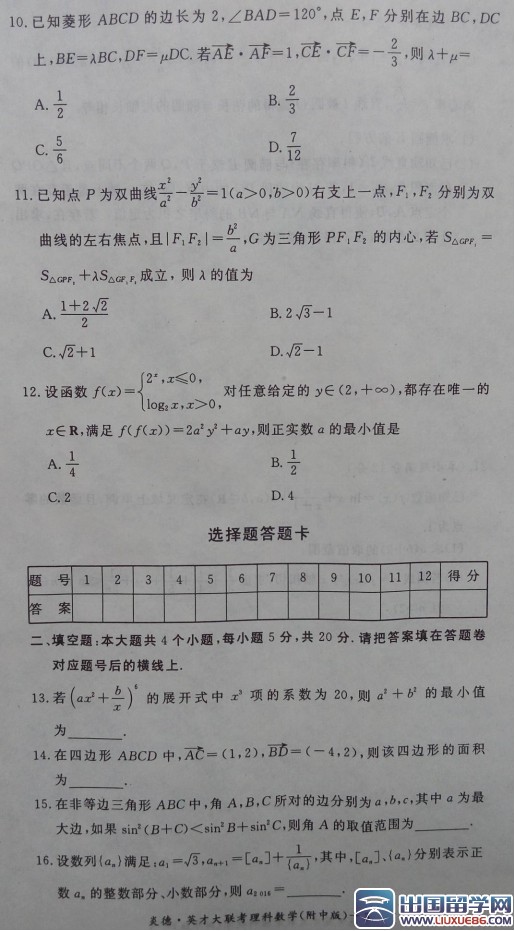 10. 已知菱形 ABCD 的边长为 2,∠BAD=120°,点 E,F 分别在边 BC,DC
上,BE=λBC,DF=μDC. 若$\overrightarrow{AE}$·$\overrightarrow{AF}$=1,$\overrightarrow{CE}$·$\overrightarrow{CF}$=-$\frac{2}{3}$,则 λ+μ=
A. $\frac{1}{2}$ B. $\frac{2}{3}$
C. $\frac{5}{6}$ D. $\frac{7}{12}$
11. 已知点 P 为双曲线$\frac{x^2}{a^2}$-$\frac{y^2}{b^2}$=1(a>0,b>0)右支上一点,F₁,F₂ 分别为双
曲线的左右焦点,且|F₁F₂|=$\frac{b^2}{a}$,G 为三角形 PF₁F₂ 的内心,若 $S_{△GPF_1}$=
$S_{△GPF_2}$+λ$S_{△GF_1F_2}$成立,则 λ 的值为
A. $\frac{1+2\sqrt{2}}{2}$ B. 2$\sqrt{3}$-1
C. $\sqrt{2}$+1 D. $\sqrt{2}$-1
12. 设函数 f(x)=$\begin{cases}2^x,x≤0,\\ \log_2 x,x>0,\end{cases}$ 对任意给定的 y∈(2,+∞),都存在唯一的
x∈R,满足 f(f(x))=2a²y²+ay,则正实数 a 的最小值是
A. $\frac{1}{4}$ B. $\frac{1}{2}$
C. 2 D. 4
选择题答题卡
题 号 1 2 3 4 5 6 7 8 9 10 11 12 得 分
答 案
二、填空题:本大题共 4 个小题,每小题 5 分,共 20 分. 请把答案填在答题卷
对应题号后的横线上.
13. 若$\left(ax^2+\frac{b}{x}\right)^6$的展开式中 x³ 项的系数为 20,则 a²+b² 的最小值
为______.
14. 在四边形 ABCD 中,$\overrightarrow{AC}$=(1,2),$\overrightarrow{BD}$=(-4,2),则该四边形的面积
为______.
15. 在非等边三角形 ABC 中,角 A,B,C 所对的边分别为 a,b,c,其中 a 为最
大边,如果 sin²(B+C)<sin²B+sin²C,则角 A 的取值范围为______.
16. 设数列{aₙ}满足:a₁=$\sqrt{3}$,$a_{n+1}$=[aₙ]+$\frac{1}{\{a_n\}}$,其中,[aₙ]、{aₙ}分别表示正
数 aₙ 的整数部分、小数部分,则 $a_{2016}$=______.
炎德·英才大联考理科数学(附中版)-
出国留学网
www.liuxue86.com